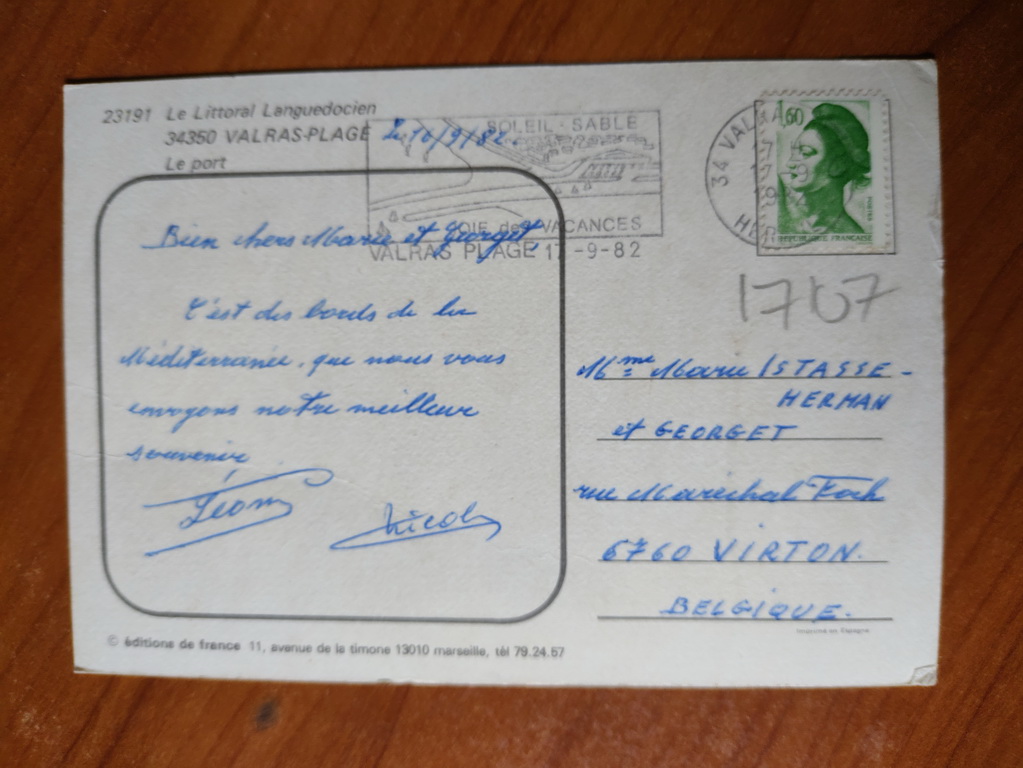 23191 Le Littoral Languedocien
34350 VALRAS-PLAGE
Le port
Le 16/9/82.
SOLEIL - SABLE
JOIE des VACANCES
VALRAS PLAGE 17-9-82
34 VALRAS
17
1982
1,60
REPUBLIQUE FRANÇAISE
1767
Bien chers Marie et Georget,
C'est des bords de la
Méditerranée, que nous vous
envoyons notre meilleur
souvenir
Léon
Nicole
Mme Marie ISTASSE -
HERMAN
et GEORGET
rue Maréchal Foch
6760 VIRTON.
BELGIQUE.
Imprimé en Espagne
© éditions de france 11, avenue de la timone 13010 marseille, tél 79.24.57